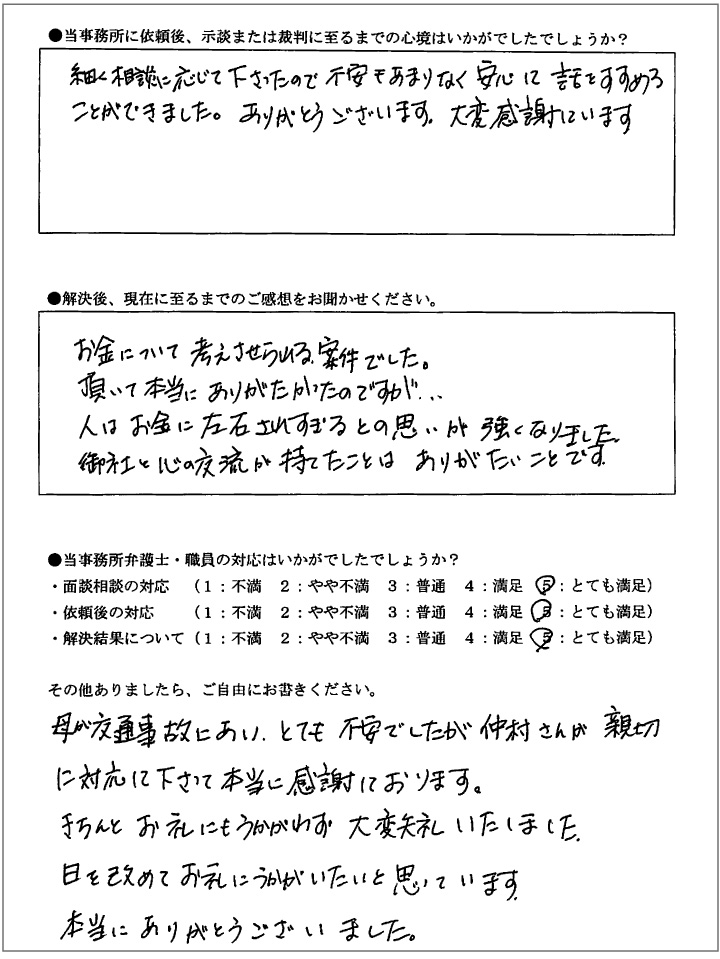 ●当事務所に依頼後、示談または裁判に至るまでの心境はいかがでしたでしょうか？
細く相談に応じて下さったので不安もあまりなく安心して話をすすめる
ことができました。ありがとうございます。大変感謝しています
●解決後、現在に至るまでのご感想をお聞かせください。
お金について考えさせられる案件でした。
頂いて本当にありがたかったのですが...
人はお金に左右されすぎるとの思いが強くなりました。
御社と心の交流が持てたことはありがたいことです。
●当事務所弁護士・職員の対応はいかがでしたでしょうか？
・面談相談の対応　（１：不満　２：やや不満　３：普通　４：満足　５：とても満足）
・依頼後の対応　（１：不満　２：やや不満　３：普通　４：満足　５：とても満足）
・解決結果について（１：不満　２：やや不満　３：普通　４：満足　５：とても満足）
その他ありましたら、ご自由にお書きください。
母が交通事故にあい、とても不安でしたが仲村さんが親切
に対応して下さって本当に感謝しております。
きちんとお礼にもうかがわず大変失礼いたしました。
日を改めてお礼にうかがいたいと思っています。
本当にありがとうございました。